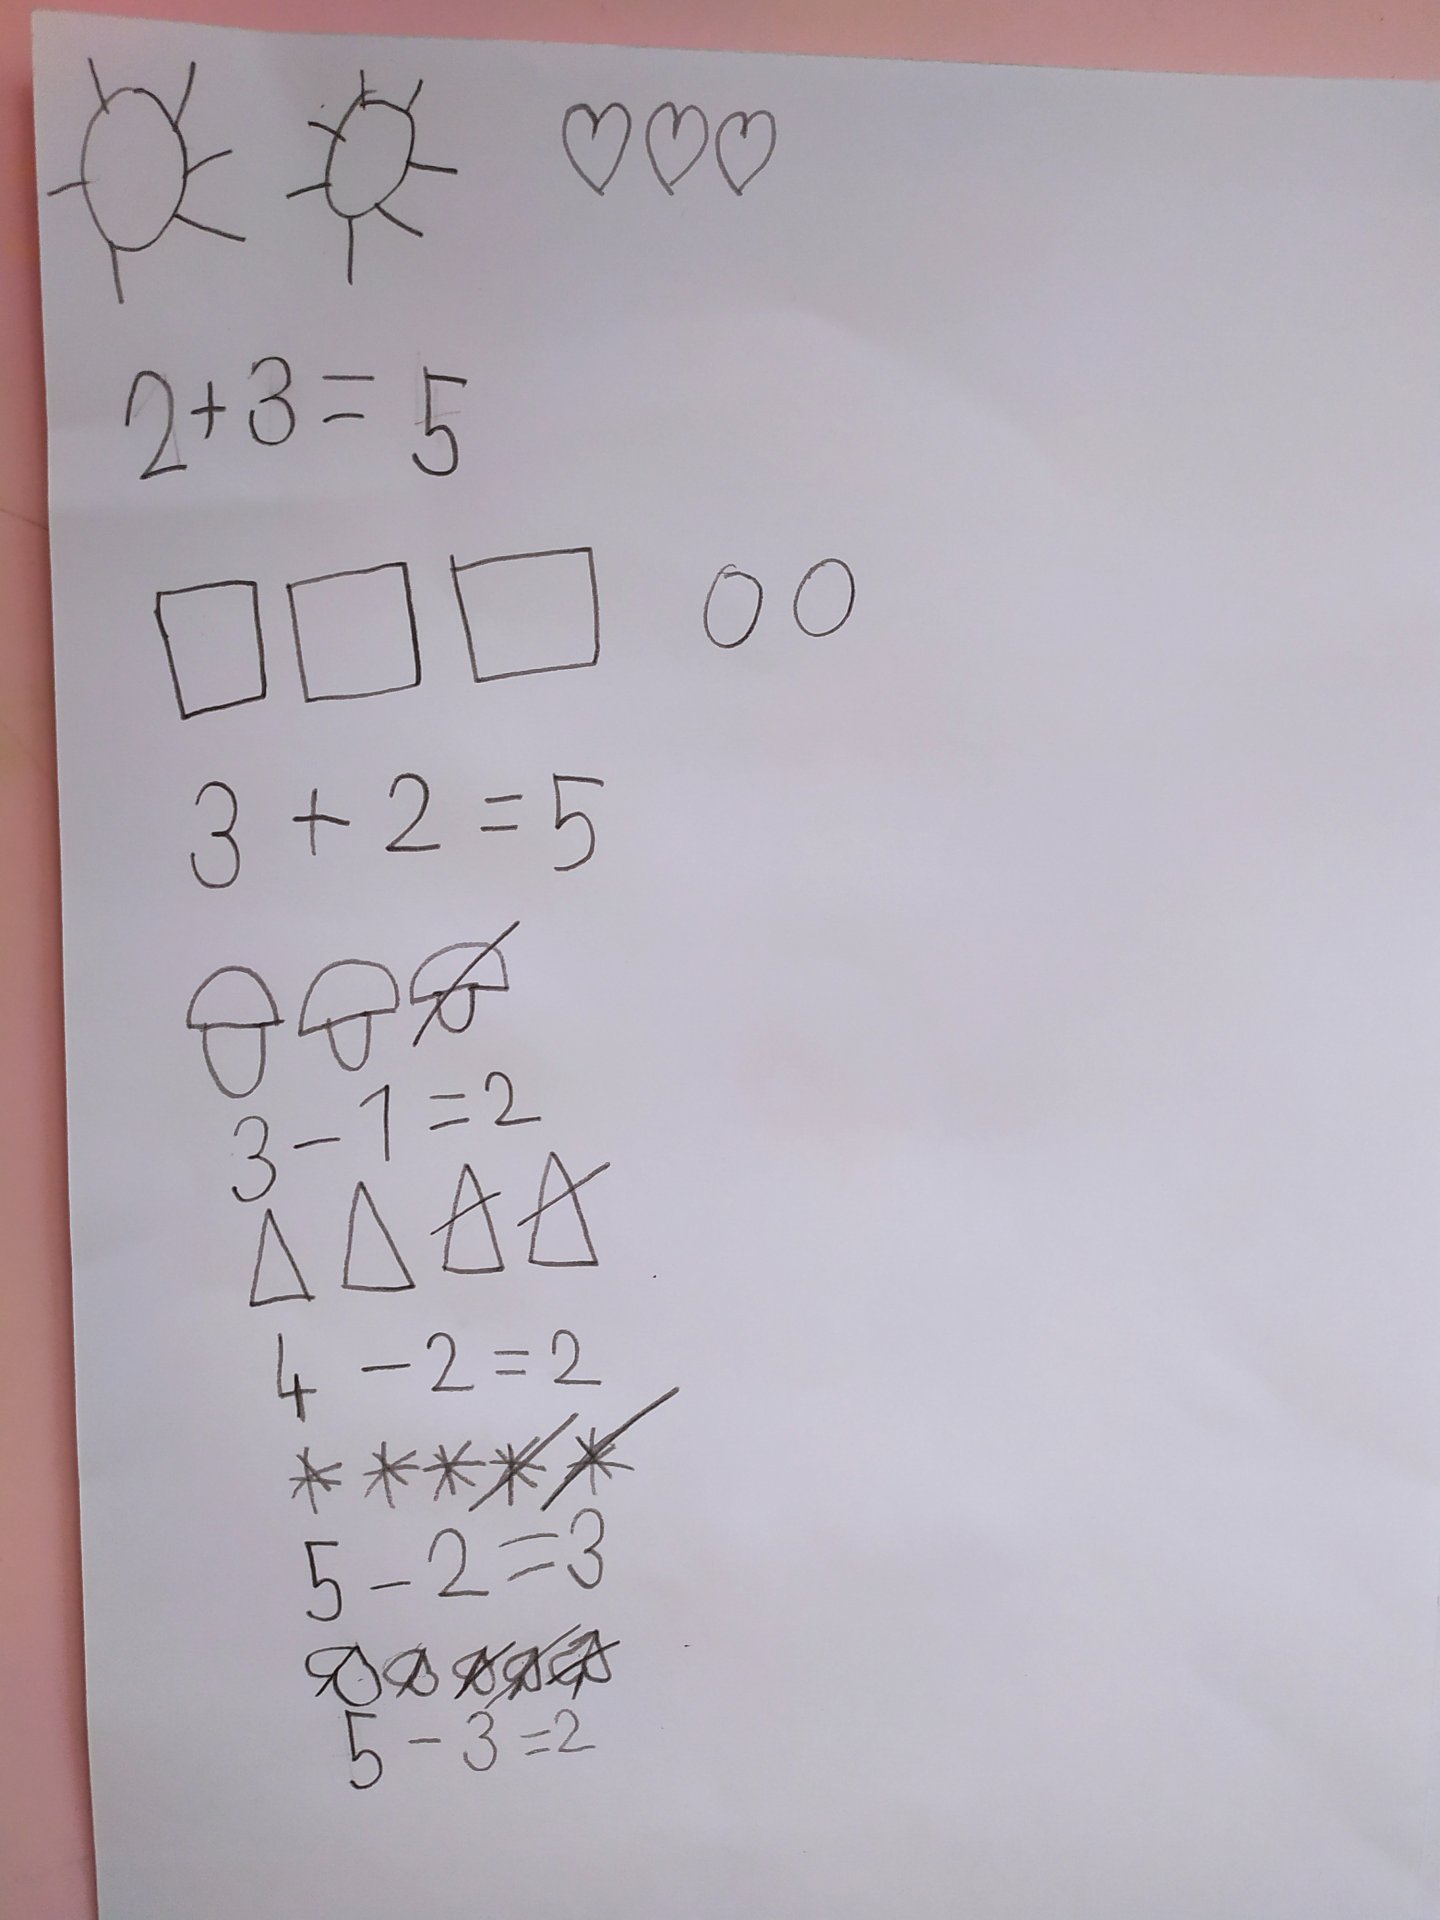 2+3=5
3+2=5
3-1=2
4-2=2
5-2=3
5-3=2